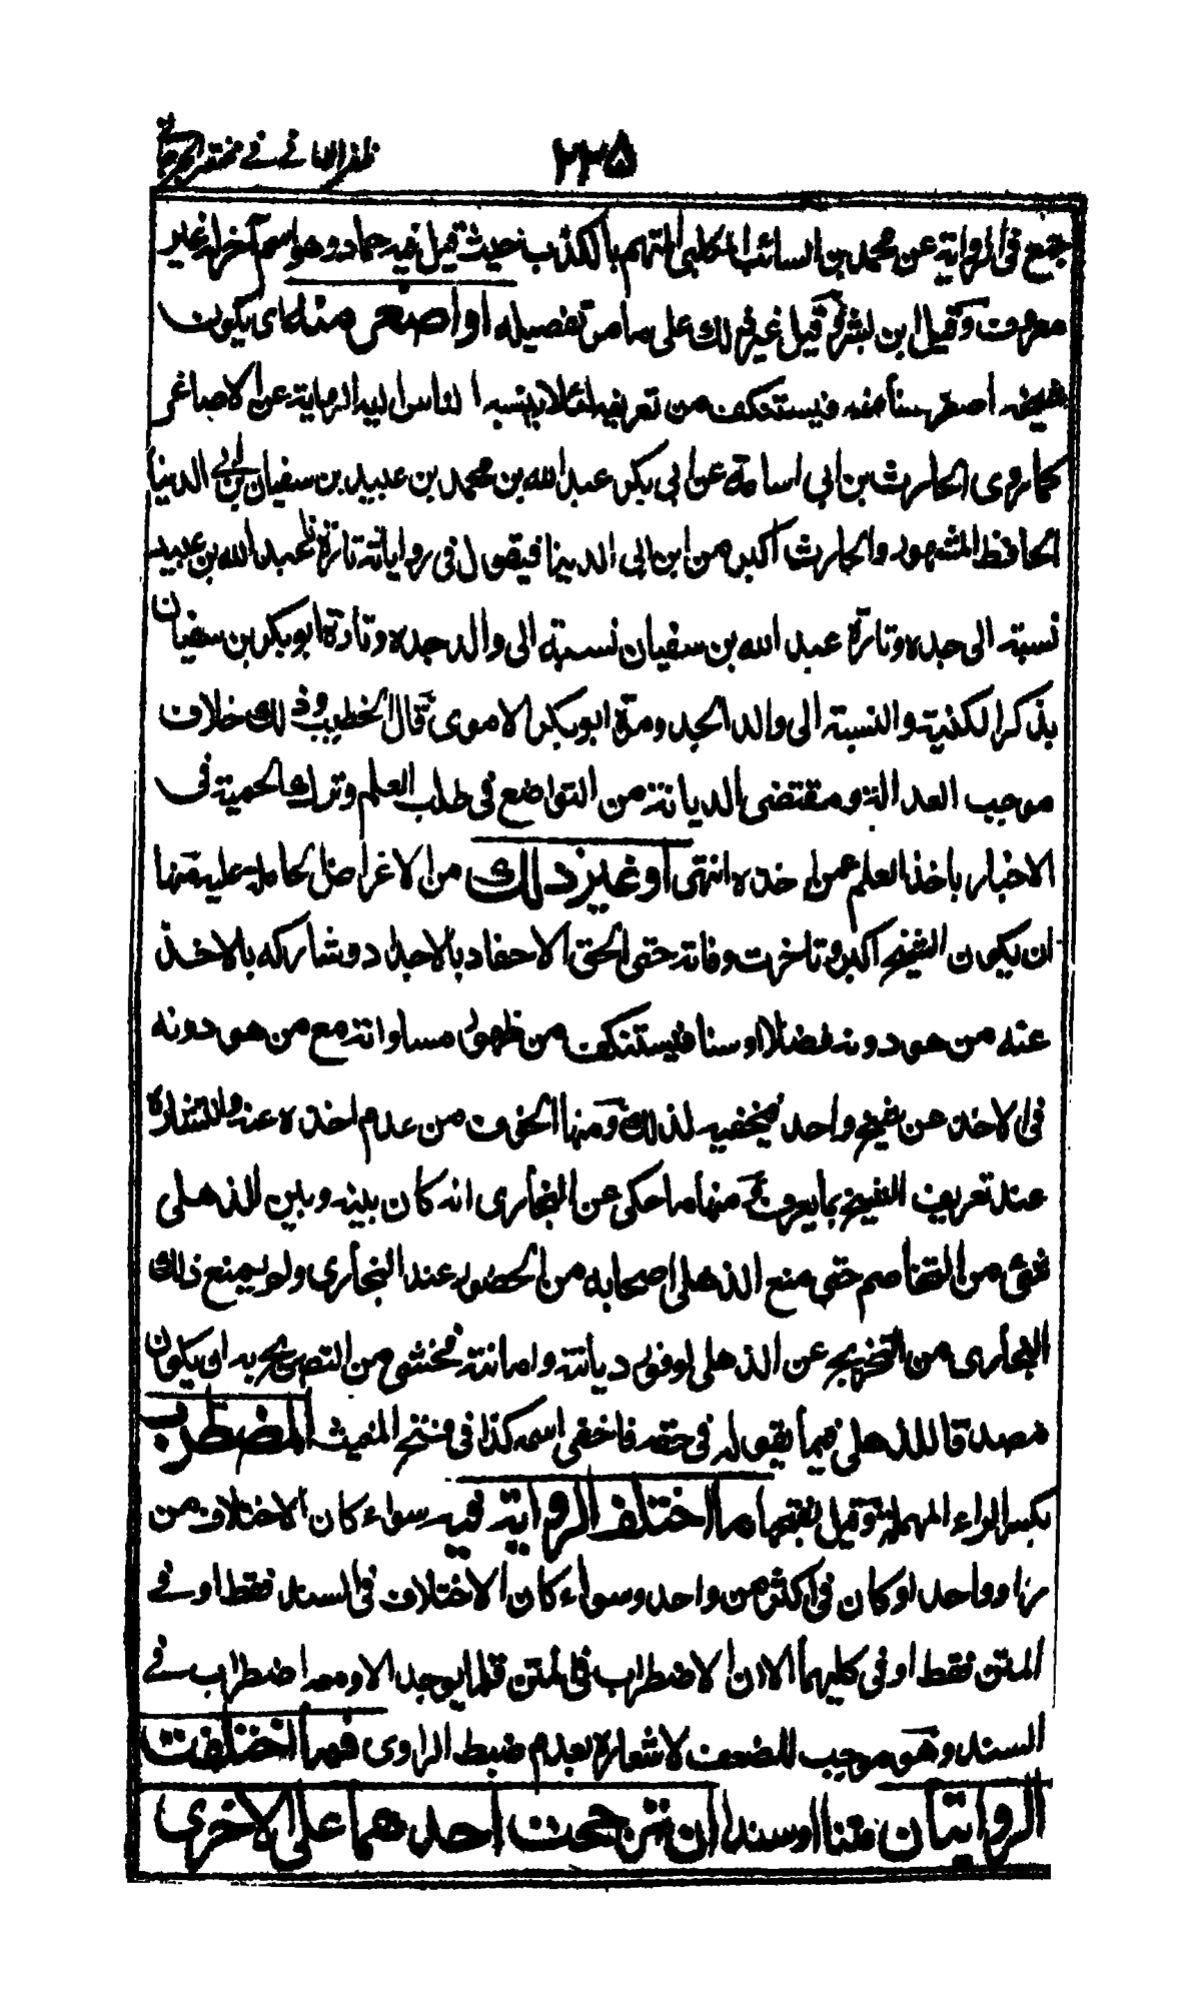 ظفر الامانے فے مختصر الجرجانے
٢٣٥
جمع فى الرواية عن محمد بن السائب الكلبى المتهم بالكذب حيث قيل فيه حماد وهو اسم آخر له غير
معروف وقيل ابن بشر وقيل غير ذلك على ما مر تفصيله او اصغر منه اى يكون
شيخه اصغر سنا منه فيستنكف من تعريفه لئلا ينسبه الناس اليه الرواية عن الاصاغر
كما روى الحارث بن ابى اسامة عن ابى بكر عبد الله بن محمد بن عبيد بن سفيان بن ابى الدنيا
الحافظ المشهور والحارث اكبر من ابن ابى الدنيا فيقول فى رواياته تارة عبد الله بن عبيد
نسبته الى جده وتارة عبد الله بن سفيان نسبته الى والد جده وتارة ابو بكر بن سفيان
بذكر الكنية والنسبة الى والد الجد ومرة ابو بكر الاموى قال الخطيب وذلك خلاف
موجب العدالة ومقتضى الديانة من التواضع فى طلب العلم وترك الحمية فى
الاخبار باخذ العلم عمن اخذه انتهى او غير ذلك من الاغراض الحاملة عليه منها
ان يكون الشيخ اكبر وتاخرت وفاته حتى الحق الاحفاد بالاجداد وشاركه بالاخذ
عنه من هو دونه فضلا او سنا فيستنكف من ظهور مساواته مع من هو دونه
فى الاخذ عن شيخ واحد فيخفيه لذلك ومنها الخوف من عدم اخذه عنه وانتشاره
عند تعريف الشيخ بما يعرف به ومنها ما حكى عن البخارى انه كان بينه وبين الذهلى
شئ من التخاصم حتى منع الذهلى اصحابه من الحضور عند البخارى ولم يمنع ذلك
البخارى من التخريج عن الذهلى لوفور ديانته وامانته فخشى من التصريح به ان يكون
مصدقا للذهلى فيما يقوله فى حقه فاخفى اسمه كذا فى فتح المغيث المضطرب
بكسر الراء المهملة وقيل بفتحها ما اختلف الرواية فيه سواء كان الاختلاف من
راو واحد او كان فى اكثر من واحد وسواء كان الاختلاف فى السند فقط او فے
المتن فقط او فى كليهما الا ان الاضطراب فى المتن قلما يوجد الا ومعه اضطراب فے
السند وهو موجب للضعف لاشعاره بعدم ضبط الراوى فهما اختلفت
الروايتان متنا او سندا ان ترجحت احدهما على الاخرى